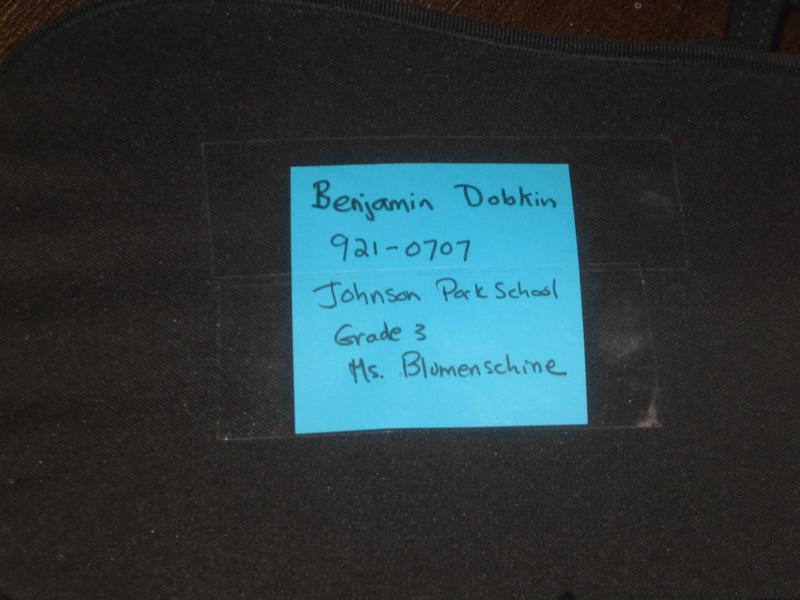 Benjamin Dobkin
921-0707
Johnson Park School
Grade 3
Ms. Blumenschine